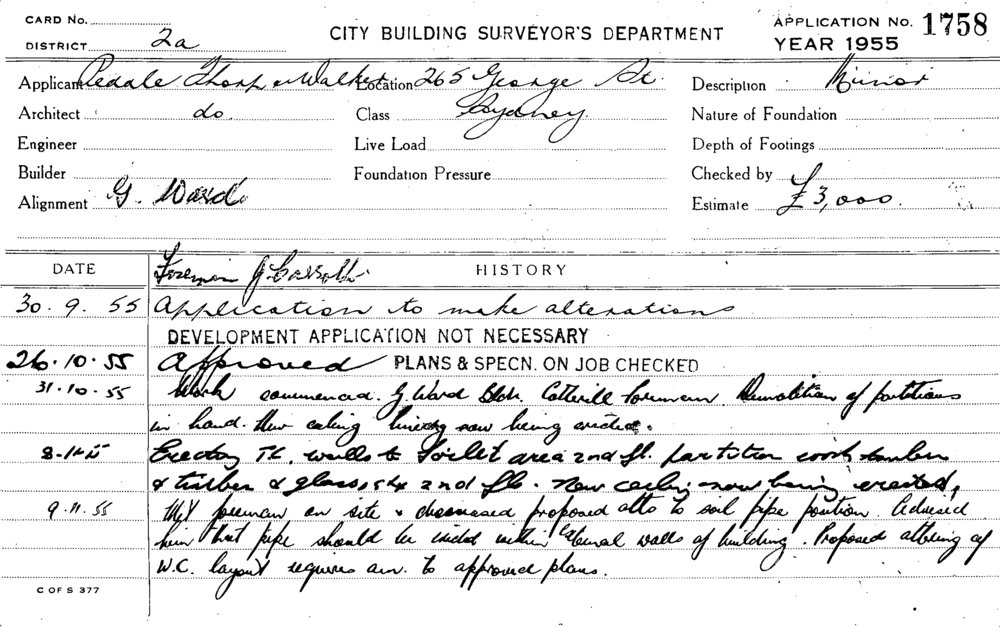 CARD No.
DISTRICT 2a
CITY BUILDING SURVEYOR'S DEPARTMENT
APPLICATION No. 1758
YEAR 1955
Applicant Peddle Thorp & Walker Location 265 George St. Description Minor
Architect do Class Sydney Nature of Foundation
Engineer Live Load Depth of Footings
Builder Foundation Pressure Checked by
Alignment G. Ward Estimate £3,000.
DATE Foreman J HISTORY
30.9.55 Application to make alterations
DEVELOPMENT APPLICATION NOT NECESSARY
26.10.55 Approved PLANS & SPECN. ON JOB CHECKED
31.10.55 Work commenced. G. Ward Bldr. Cotterill foreman. Demolition of partitions
in hand. New ceiling now being erected.
8.11.55 Erecting T.C. walls to Toilet area 2nd fl. partition work
& timber & glass 2nd fl. New ceiling now being erected,
9.11.55 Met foreman on site & discussed proposed altns to soil pipe position. Advised
him that pipe should be within external walls of building. Proposed altering of
W.C. layout requires am. to approved plans.
C OF S 377